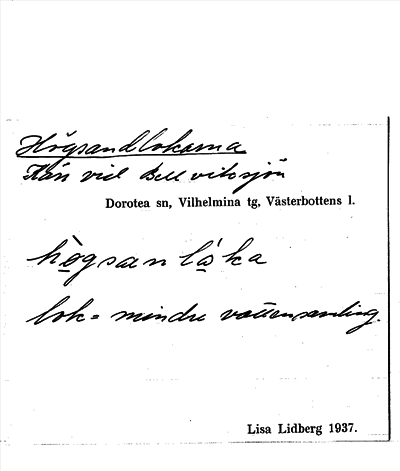 Högsandlokarna
vid
Dorotea sn, Vilhelmina tg, Västerbottens l.
högsanlåka
lok = mindre vattensamling.
Lisa Lidberg 1937.